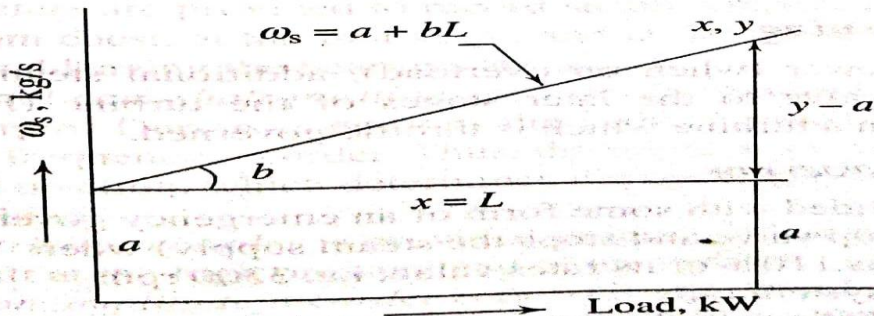 ωₛ = a + bL
x, y
ωₛ, kg/s
y – a
b
x = L
a
a
Load, kW